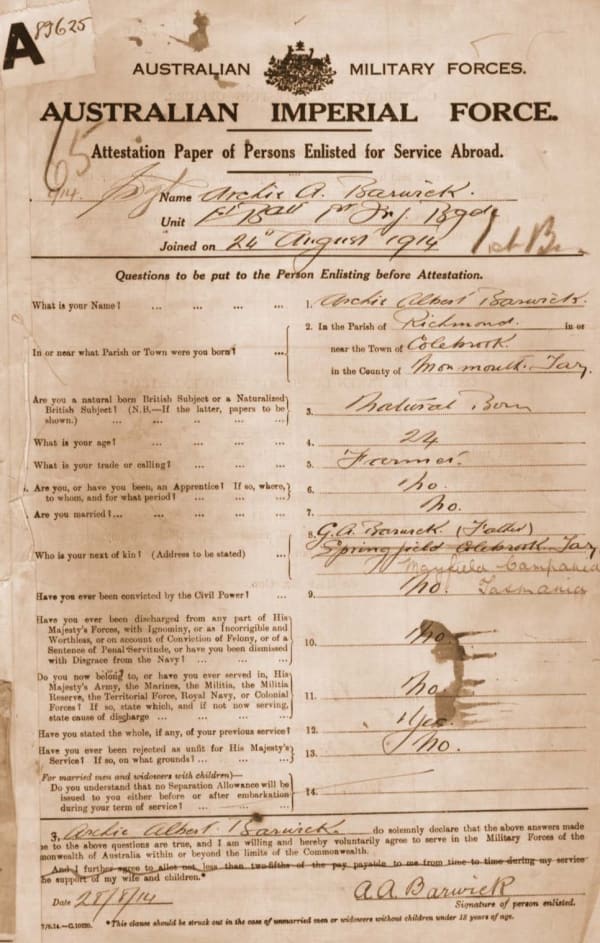 A 89625
AUSTRALIAN MILITARY FORCES.
AUSTRALIAN IMPERIAL FORCE.
Attestation Paper of Persons Enlisted for Service Abroad.
Name Archie A. Barwick.
Unit 1st Batt 1st Inf Bgde
Joined on 24th August 1914
Questions to be put to the Person Enlisting before Attestation.
What is your Name? ... ... ... ... 1. Archie Albert Barwick.
2. In the Parish of Richmond. in or
In or near what Parish or Town were you born? ... near the Town of Colebrook.
in the County of Monmouth. Tas.
Are you a natural born British Subject or a Naturalized
British Subject? (N.B.—If the latter, papers to be
shown.) ... ... ... ... ... 3. Natural Born
What is your age? ... ... ... ... 4. 24
What is your trade or calling? ... ... ... 5. Farmer.
Are you, or have you been, an Apprentice? If so, where,
to whom, and for what period? ... ... ... 6. No.
Are you married?... ... ... ... ... 7. No.
8. G. A. Barwick (Father)
Who is your next of kin? (Address to be stated) ... Springfield Colebrook Tas
Mayfield Campania
Tasmania
Have you ever been convicted by the Civil Power? ... 9. No.
Have you ever been discharged from any part of His
Majesty's Forces, with Ignominy, or as Incorrigible and
Worthless, or on account of Conviction of Felony, or of a
Sentence of Penal Servitude, or have you been dismissed
with Disgrace from the Navy? ... ... ... 10. No.
Do you now belong to, or have you ever served in, His
Majesty's Army, the Marines, the Militia, the Militia
Reserve, the Territorial Force, Royal Navy, or Colonial
Forces? If so, state which, and if not now serving,
state cause of discharge ... ... ... ... 11. No.
Have you stated the whole, if any, of your previous service? 12. Yes.
Have you ever been rejected as unfit for His Majesty's
Service? If so, on what grounds? ... ... ... 13. No.
For married men and widowers with children)—
Do you understand that no Separation Allowance will be
issued to you either before or after embarkation
during your term of service? ... ... ... 14.
Archie Albert Barwick. do solemnly declare that the above answers made
me to the above questions are true, and I am willing and hereby voluntarily agree to serve in the Military Forces of the
monwealth of Australia within or beyond the limits of the Commonwealth.
And I further agree to allot not less than two-fifths of the pay payable to me from time to time during my service
he support of my wife and children.*
Date 28/8/14 A.A. Barwick
Signature of person enlisted.
7/8.14.—C.10220. *This clause should be struck out in the case of unmarried men or widowers without children under 18 years of age.